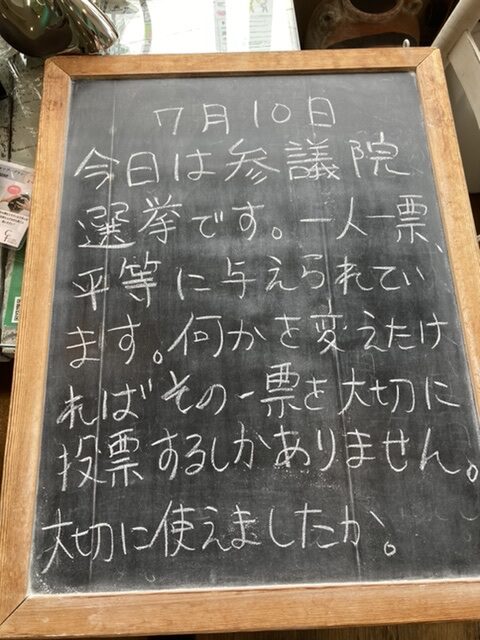 7月10日
今日は参議院
選挙です。一人一票、
平等に与えられてい
ます。何かを変えたけ
ればその一票を大切に
投票するしかありません。
大切に使えましたか。